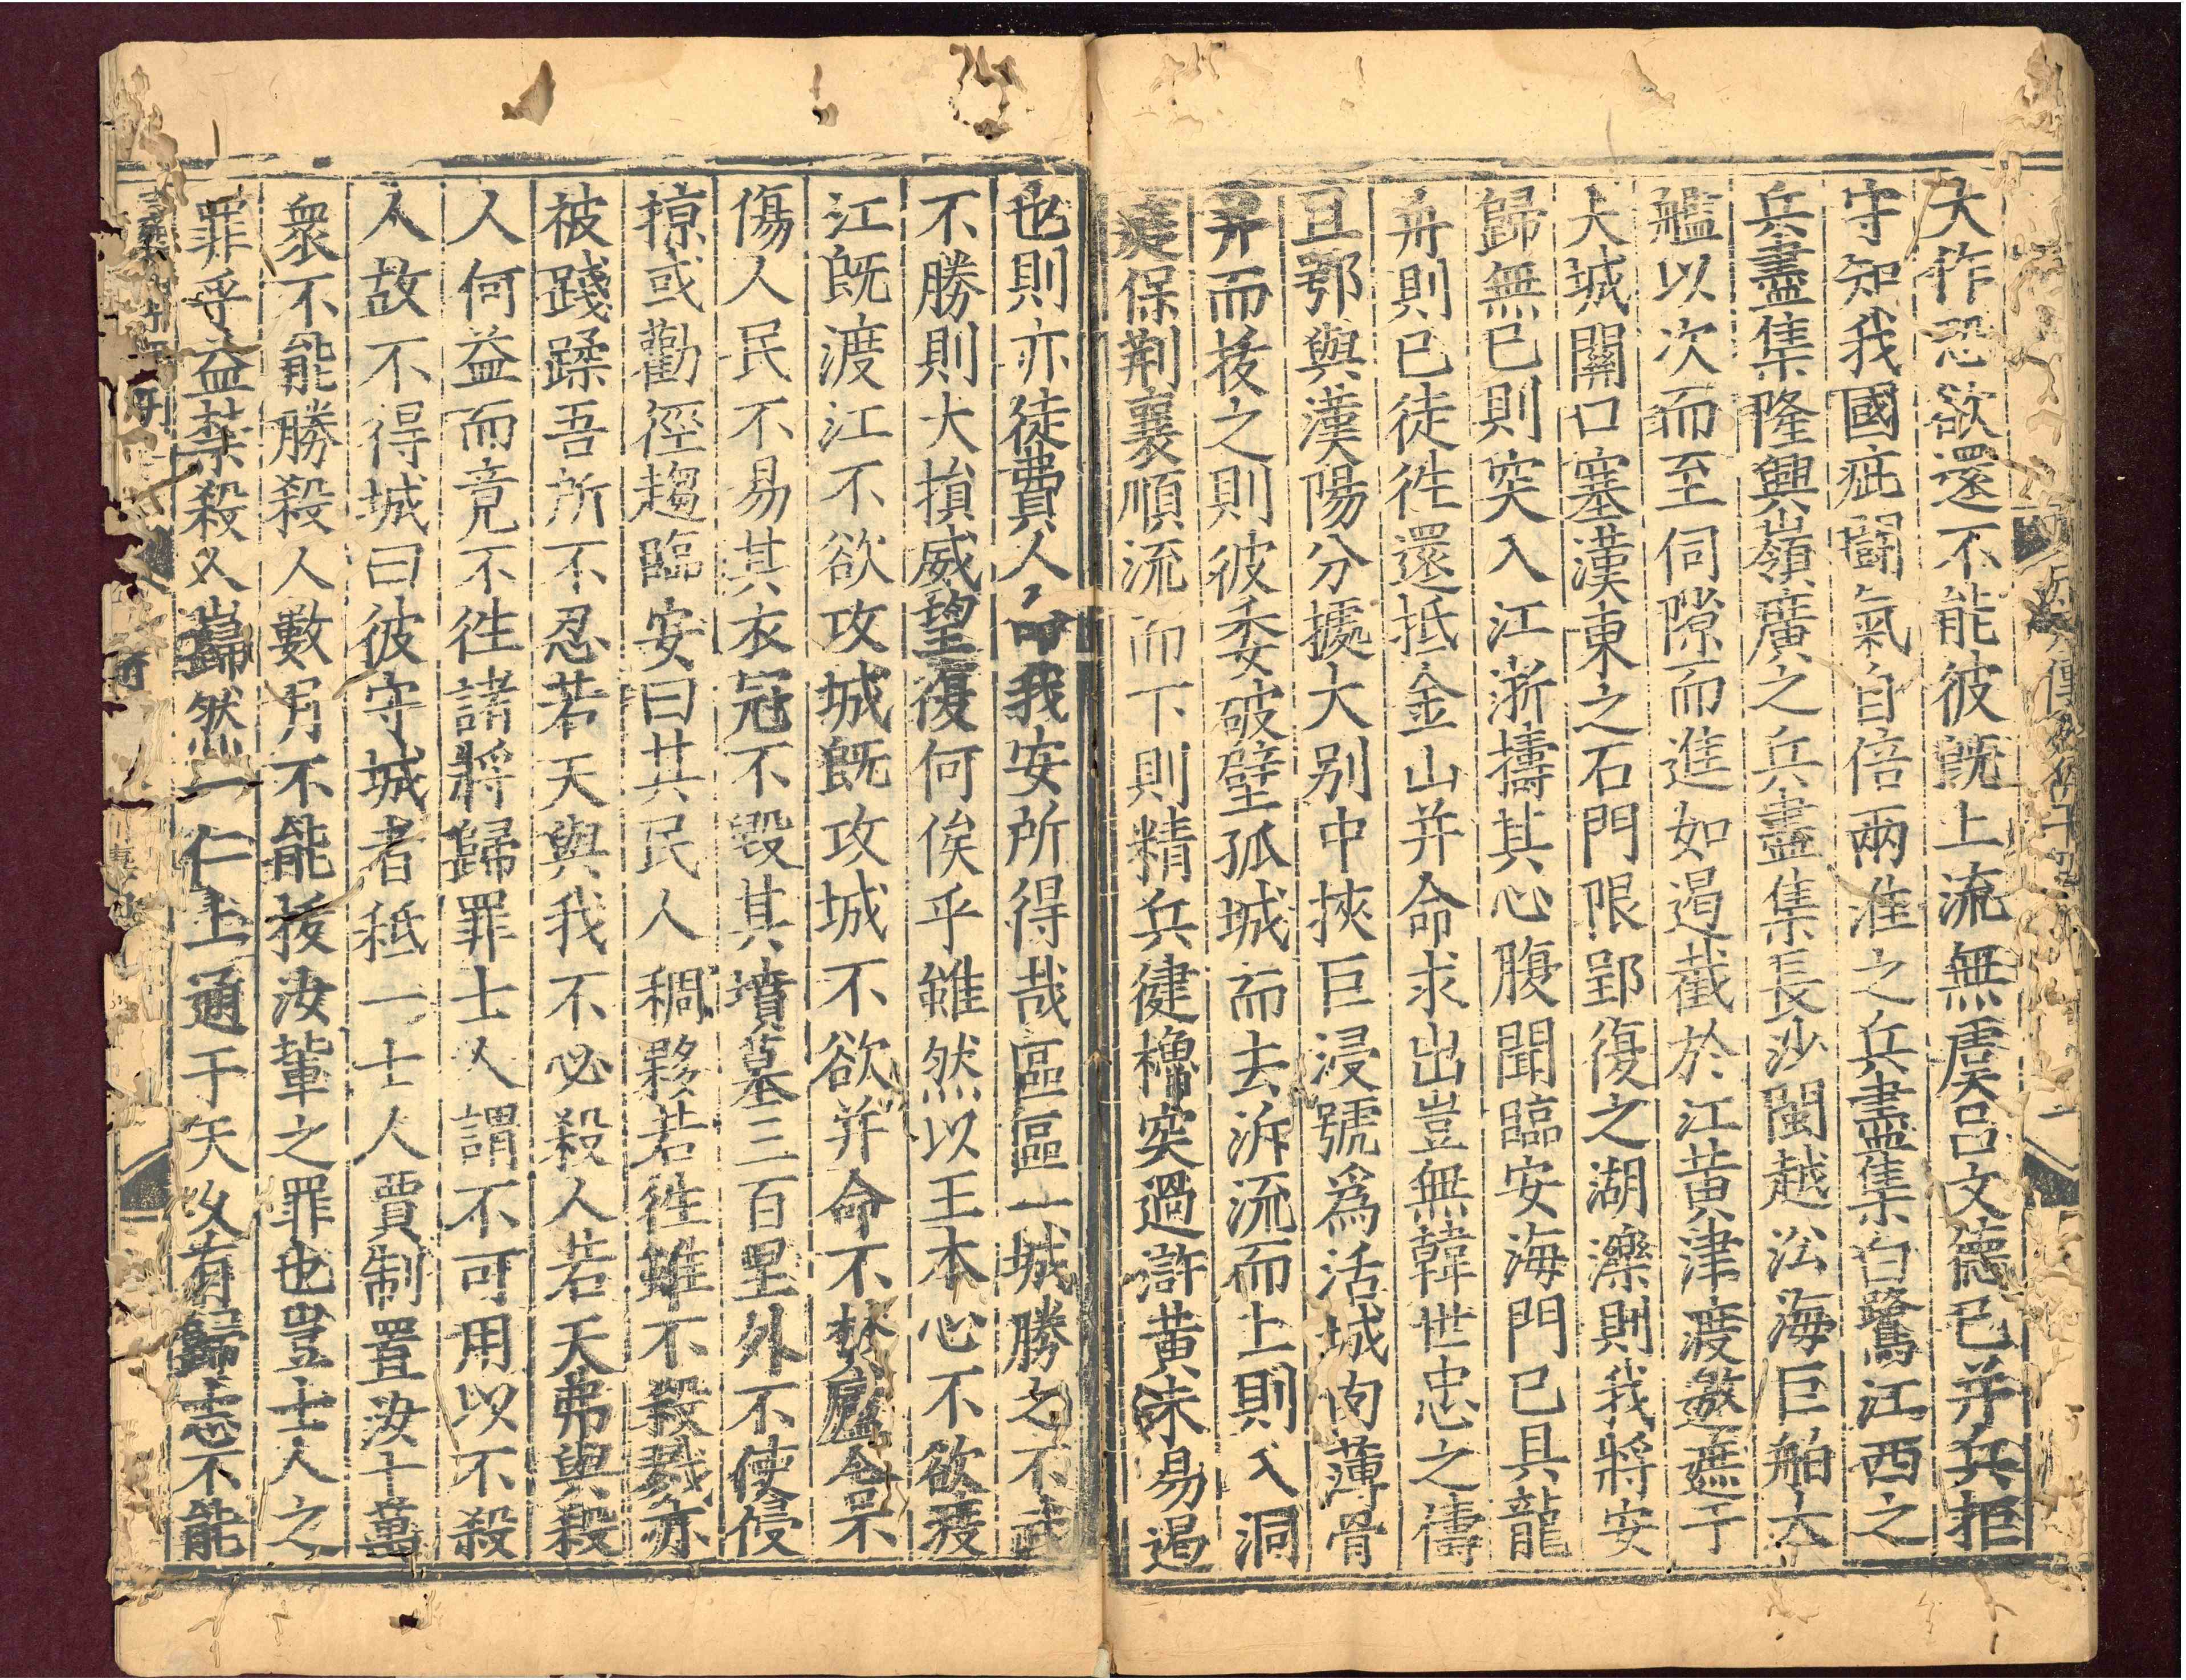 大作恐欲還不能彼既上流無虞呂文德已并兵拒
守知我國疵鬪氣自倍兩淮之兵盡集白鷺江西之
兵盡集隆興嶺廣之兵盡集長沙閩越沿海巨舶大
艦以次而至伺隙而進如遏截於江黃津渡邀遮于
大城關口塞漢東之石門限郢復之湖濼則我將安
歸無已則突入江浙擣其心腹聞臨安海門已具龍
舟則已徒徃還抵金山并命求出豈無韓世忠之儔
且鄂與漢陽分據大别中挾巨浸號爲活城肉薄骨
并而拔之則彼委破壁孤城而去泝流而上則入洞
庭保荆襄順流而下則精兵健櫓突過滸黃未易遏
也則亦徒費人命我安所得哉區區一城勝之不武
不勝則大損威望復何俟乎雖然以王本心不欲渡
江既渡江不欲攻城既攻城不欲并命不焚廬舍不
傷人民不易其衣冠不毀其墳墓三百里外不使侵
掠或勸徑趨臨安曰其民人稠夥若徃雖不殺戮亦
被踐蹂吾所不忍若天與我不必殺人若天弗與殺
人何益而竟不徃諸將歸罪士人謂不可用以不殺
人故不得城曰彼守城者秪一士人賈制置汝十萬
衆不能勝殺人數月不能拔汝輩之罪也豈士人之
罪乎益禁殺人巋然一仁上通于天久有歸志不能